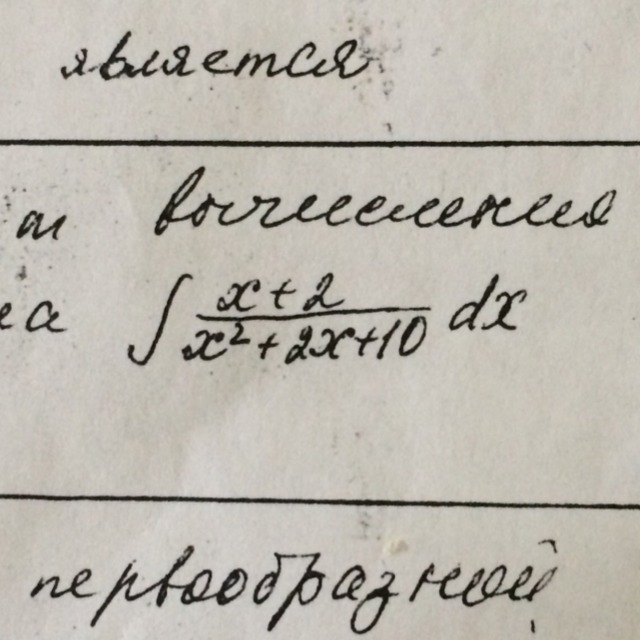 является
вычисления
∫ x+2 / x²+2x+10 dx
первообразной